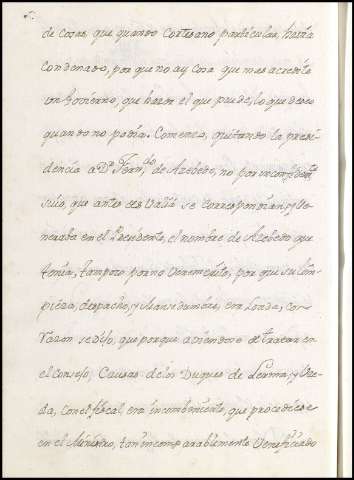 de cosas que quando Cortesano particular, havia
Condenado, por que no ay Cosa que mas acredite
un Govierno, que hazer el que puede, lo que deseo
quando no podia. Comenzo, quitando la presi-
dencia a Dn. Ferndo. de Azebedo, no por inconfidente
suio, que antes se Correspondian, y Ve-
neraba en el Presidente, el nombre de Azebedo que
tenia, tampoco por no Venemerito, por que su lim-
pieza, despacho, y Mansedumbre, era Loada, con
Razon se dijo, que porque aviendose de tratar en
el Consejo, Causas de los Duques de Lerma, y Uze-
da, con el fiscal era incombeniente, que procediese
en el Ministro, tan incomparablemente Veneficiado